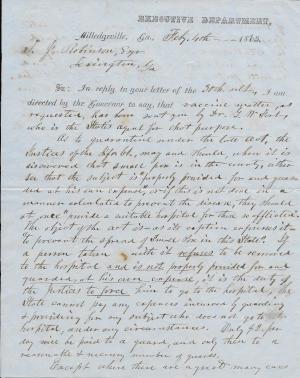 EXECUTIVE DEPARTMENT,
Milledgeville, Ga. Feby. 4th 1863
J. J. Robinson, Esqr
Lexington, Ga
Sir: In reply to your letter of the 30th ult., I am
directed by the Governor to say, that vaccine matter, as
requested, has been sent you by Dr. G. W.
who is the State's agent for that purpose.
As to quarantine under the late Act, the
Justices of the Inf. Court, may and should when it is
discovered that small pox is in the county, either
see that the subject is properly provided for and guarded
at his own expense, or if this is not done in a
manner calculated to prevent the disease, they should
at once "provide a suitable hospital for those so afflicted.
The object of the act is as its caption expresses it—
to prevent the spread of Small Pox in this State". If
a person taken with it refuses to be removed
to the hospital and is not properly provided for and
guarded at his own expense, it is the duty of
the Justices to force him to go to the hospital. The
State cannot pay any expences incurred by guarding
& providing for any subject who does not go to the
hospital, under any circumstances. Only $2. per
day will be paid to a guard, and only then to a
reasonable & necessary number of guards.
Except where there are a great many cases